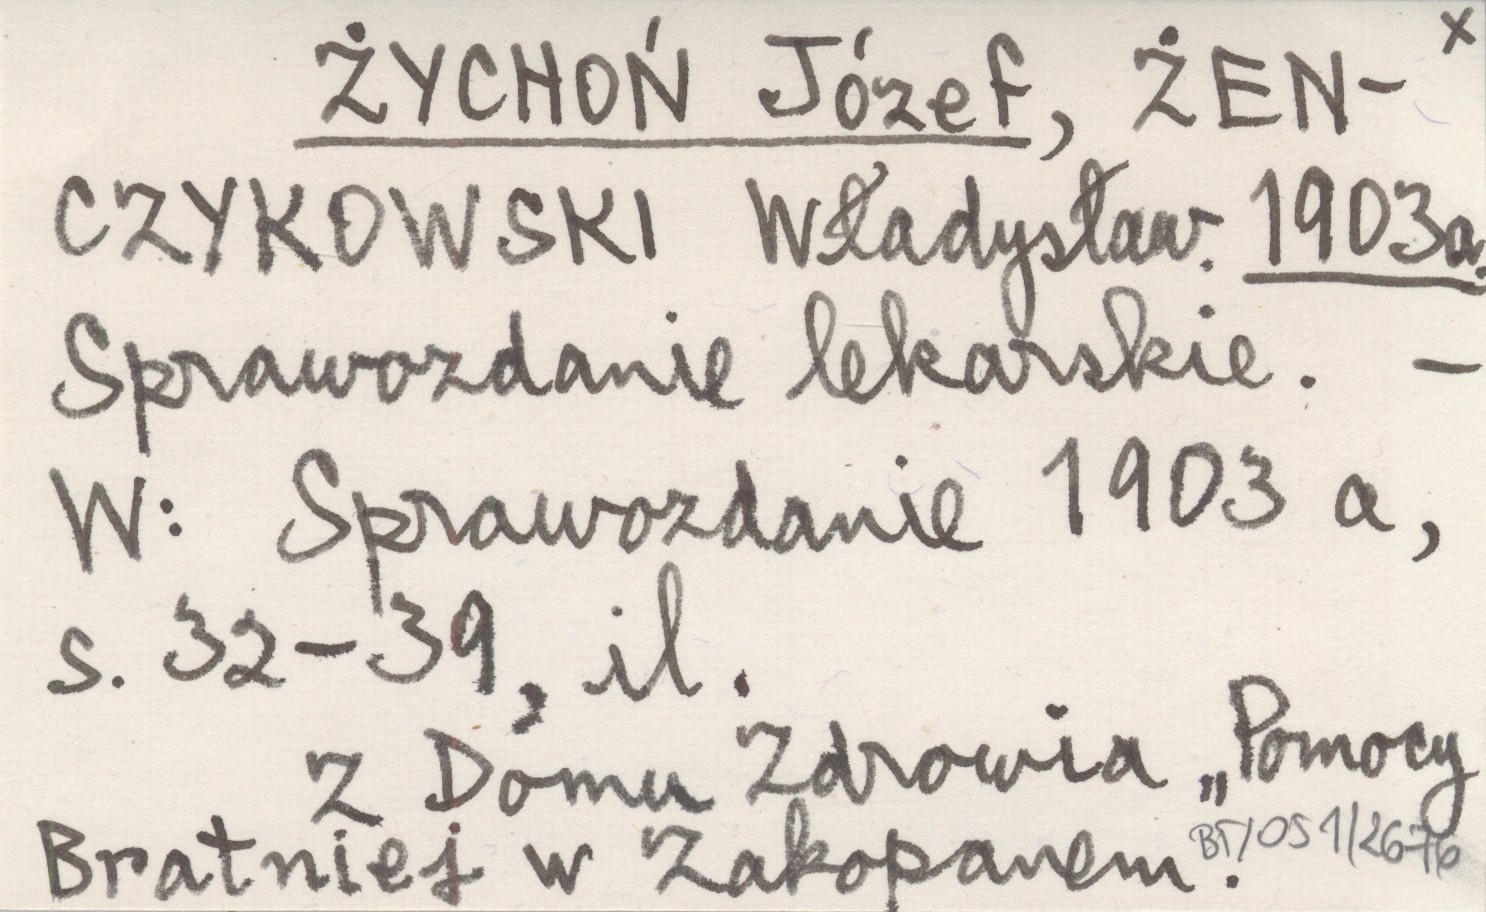 x
ŻYCHOŃ Józef, ŻEN-
CZYKOWSKI Władysław. 1903a.
Sprawozdanie lekarskie. —
W: Sprawozdanie 1903 a,
s. 32-39, il.
Z Domu Zdrowia „Pomocy
Bratniej w Zakopanem.
BT/OS1/2676